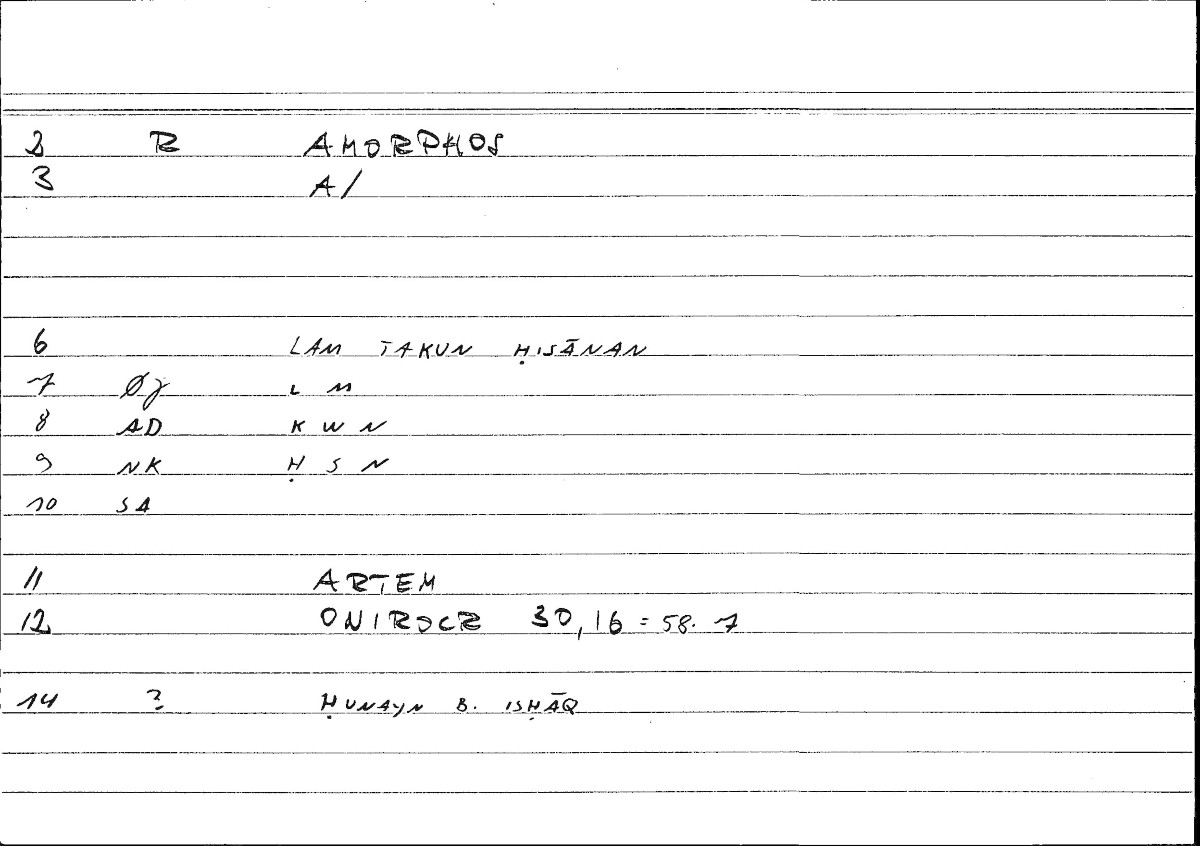 2 R AMORPHOS
3 A/
6 LAM TAKUN ḤISĀNAN
7 Øj L M
8 AD K W N
9 NK Ḥ S N
10 SA
11 ARTEM
12 ONIROCR 30,16 = 58.7
14 ? ḤUNAYN B. ISḤĀQ